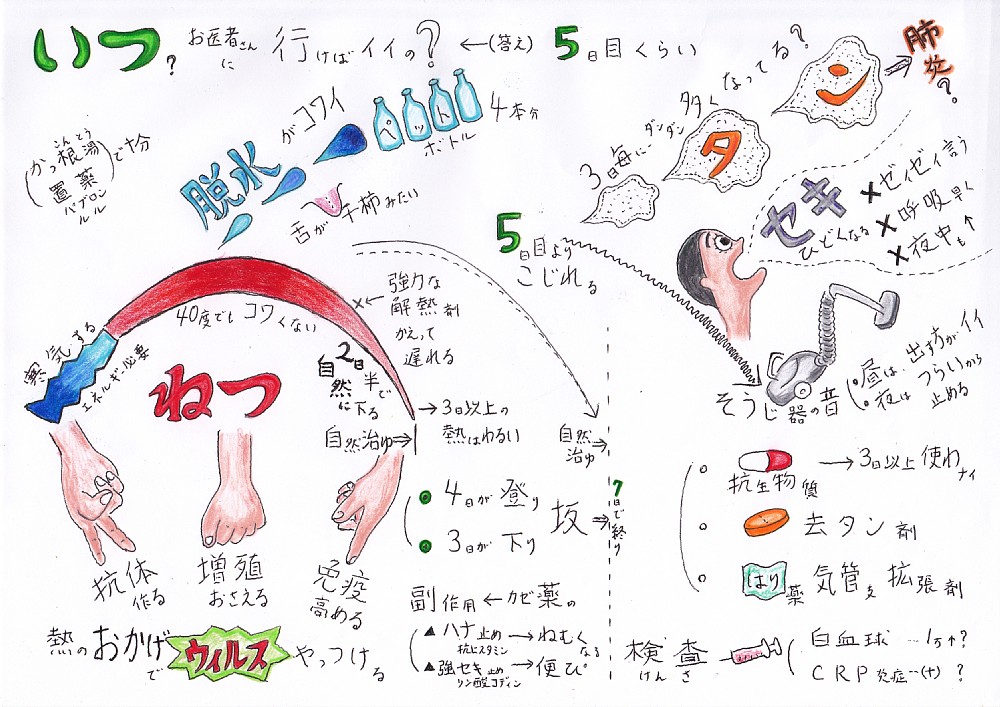 いつ? お医者さんに 行けばイイの? ←(答え) 5日目くらい
脱水がコワイ
ペットボトル 4本分
舌が干柿みたい
(かっ根湯 こんとう
置薬
パブロン
ルル) で十分
3日毎に ダンダン 多く なってる?
タン → 肺炎?
セキ ひどくなる
×ゼイゼイ言う
×呼吸早く
×夜中も↑
5日目より
こじれる
寒気する
エネルギー必要
40度でもコワくない
×←強力な
解熱剤
かえって
遅れる
2日半で
自然に下る
ねつ
自然治ゆ⇒
→3日以上の
熱はわるい
自然
治ゆ⇒
そうじ器の音
昼は、出す方がイイ
夜は つらいから
止める
抗体
作る
増殖
おさえる
免疫
高める
熱のおかげで ウィルス やっつける
4日が登り
3日が下り
坂⇒
7日で終り
副作用←カゼ薬の
▲ハナ止め→ねむくなる
抗ヒスタミン
▲強セキ止め→便ぴ
リン酸コデイン
抗生物質 →3日以上使わナイ
去タン剤
はり薬 気管支拡張剤
検査 けんさ
白血球…1万↑?
CRP 炎症…(+)?